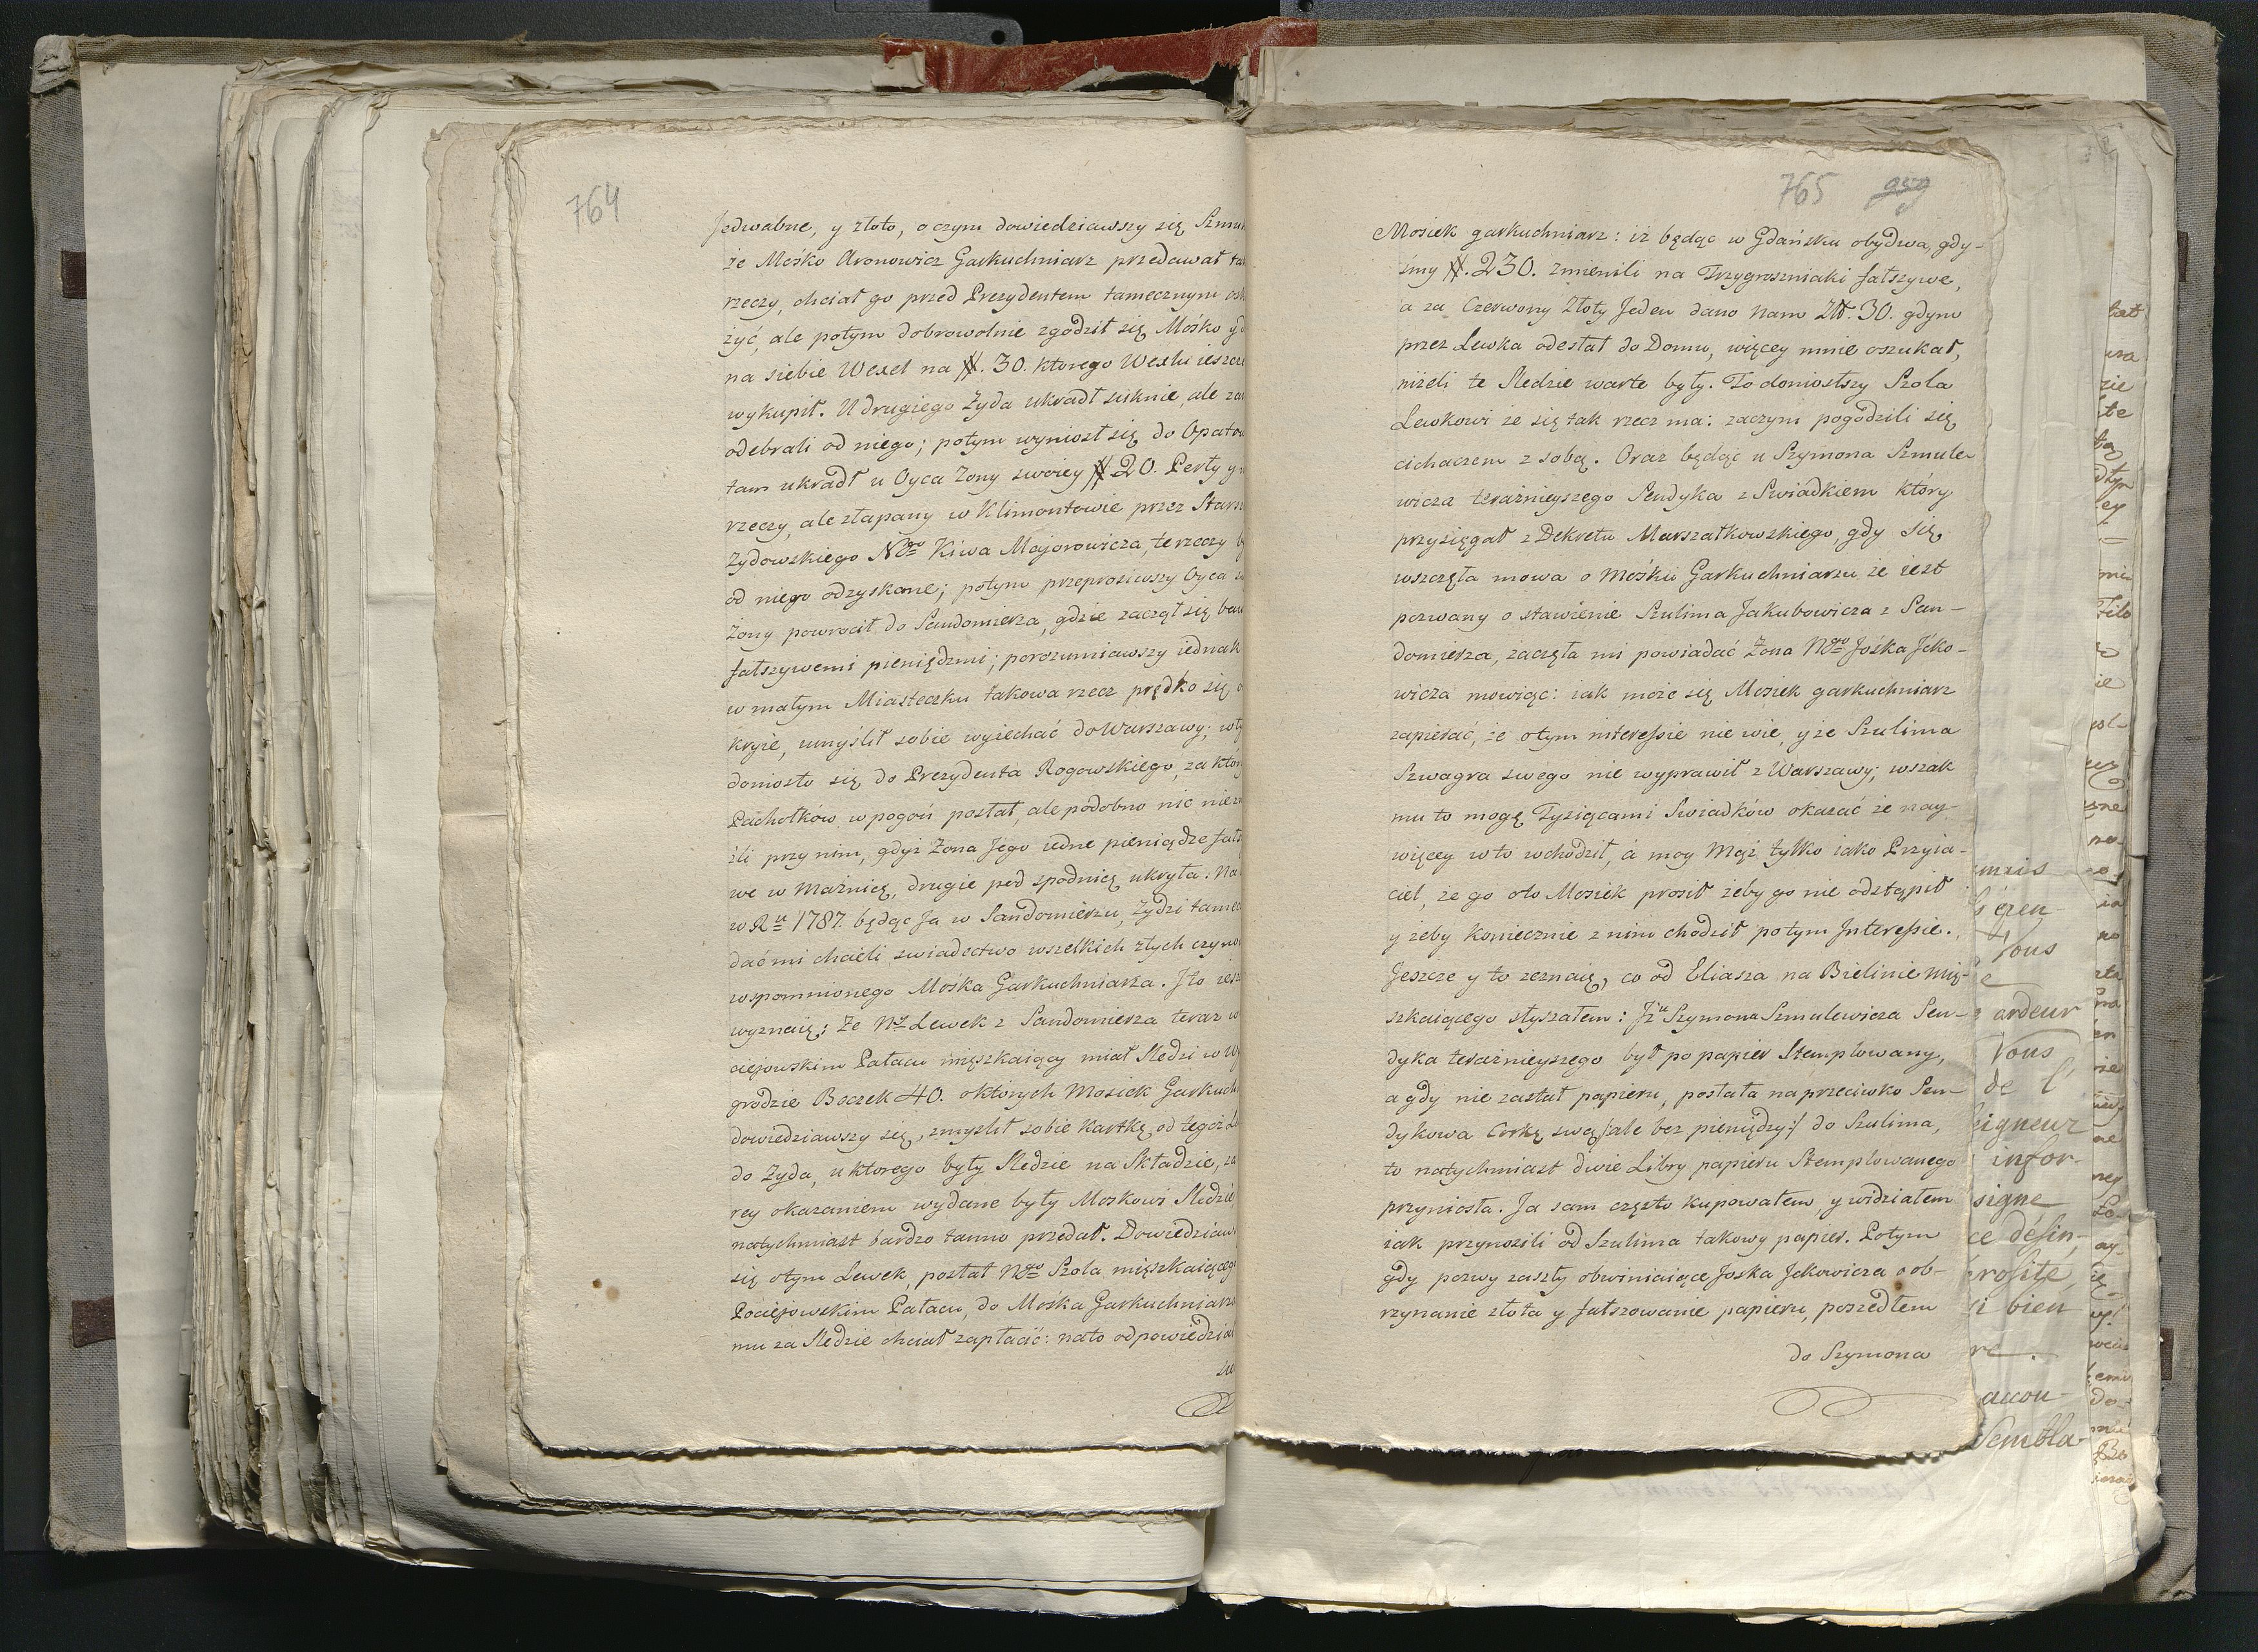 764
Jedwabne, y złoto, o czym dowiedziawszy się Szmul
że Mośko Aronowicz Garkuchniarz przedawał
rzeczy, chciał go przed Prezydentem tamecznym
żyć, ale potym dobrowolnie zgodził się Mośko
na siebie Wexel na #. 30. ktorego Wexlu ieszcze
wykupił. U drugiego Żyda ukradł suknie, ale
odebrali od niego; potym wyniosł się do Opato
tam ukradł u Oyca Żony swoiey # 20. Perły y
rzeczy, ale złapany w Klimontowie przez Stars
Żydowskiego Ngo Kiwa Majorowicza, te rzeczy
od niego odzyskane; potym przeprosiwszy Oyca
Żony powrocił do Sandomierza, gdzie zaczął się baw
fałszywemi pieniędzmi; porozumiawszy iednak
w małym Miasteczku takowa rzecz prędko się o
kryie, umyślił sobie wyiechać do Warszawy; w ty
doniosło się do Prezydenta Rogowskiego, za ktor
Pachołków w pogoń posłał, ale podobno nic nie
źli przy nim, gdyż Żona Jego iedne pieniądze fałs
we w Maźnicę, drugie pod spodnicę ukryła. Na
w Ru 1787. będąc Ja w Sandomierzu, Żydzi tamec
dać mi chcieli swiadectwo wszelkich złych czynow
wspomnionego Mośka Garkuchniarza. J to iesz
wyznaię: Że Ny Lewek z Sandomierza teraz w
ciejowskim Pałacu mięszkaiący miał Sledzi w Wy
grodzie Beczek 40. o ktorych Mosiek Garkuch
dowiedziawszy się, zmyslił sobie Kartkę od tegoż L
do Żyda, u ktorego były Sledzie na Składzie, za
rey okazaniem wydane były Moskowi Sledzie,
natychmiast bardzo tanno przedał. Dowiedziaw
się o tym Lewek, posłał Ngo Szola mięszkaiącego
Pociejowskim Pałacu, do Mośka Garkuchniarza
mu za Sledzie chciał zapłacić: na to odpowiedział
765 959
Mosiek garkuchniarz: iż będąc w Gdańsku obydwa, gdy-
śmy #. 230. zmienili na Trzygroszniaki fałszywe,
a za Czerwony Złoty Jeden dano nam Złł. 30. gdym
przez Lewka odesłał do Domu, więcey mnie oszukał,
niżeli te Sledzie warte były. To doniosłszy Szola
Lewkowi że się tak rzecz ma: zaczym pogodzili się
cichaczem z sobą. Oraz będąc u Szymona Szmule-
wicza teraźnieyszego Sendyka z Swiadkiem który
przysięgał z Dekretu Marszałkowskiego, gdy się
wszczęła mowa o Mośku Garkuchniarzu, że iest
pozwany o stawienie Szulima Jakubowicza z San-
domierza, zaczęła mi powiadać Żona Ngo Jośka Jcko-
wicza mowiąc: iak może się Mosiek garkuchniarz
zapierać, że o tym interessie nie wie, y że Szulima
Szwagra swego nie wyprawił z Warszawy; wszak
mu to mogę Tysiącami Swiadków okazać że nay-
więcey w to wchodził, á moy Mąż tylko iako Przyia-
ciel, że go o to Mosiek prosił żeby go nie odstąpił
y żeby koniecznie z nim chodził po tym Jnteressie.
Jeszcze y to zeznaię, co od Eliasza na Bielinie mię-
szkaiącego słyszałem: Jż u Szymona Szmulewicza Sen-
dyka teraźnieyszego był po papier Stemplowany,
a gdy nie zastał papieru, posłała naprzeciwko Sen-
dykowa Corkę swą /:ale bez pieniędzy:/ do Szulima,
to natychmiast dwie Libry papieru Stemplowanego
przyniosła. Ja sam często kupowałem, y widziałem
iak przynosili od Szulima takowy papier. Potym
gdy pozwy zaszły obwiniaiące Joska Jckowicza o ob-
rzynanie złota y fałszowanie papieru, poszedłem
do Szymona
Vous
ardeur
Vous
de l'
eigneur
infor-
signe
ce désin-
si bien
accou-
Sembla-